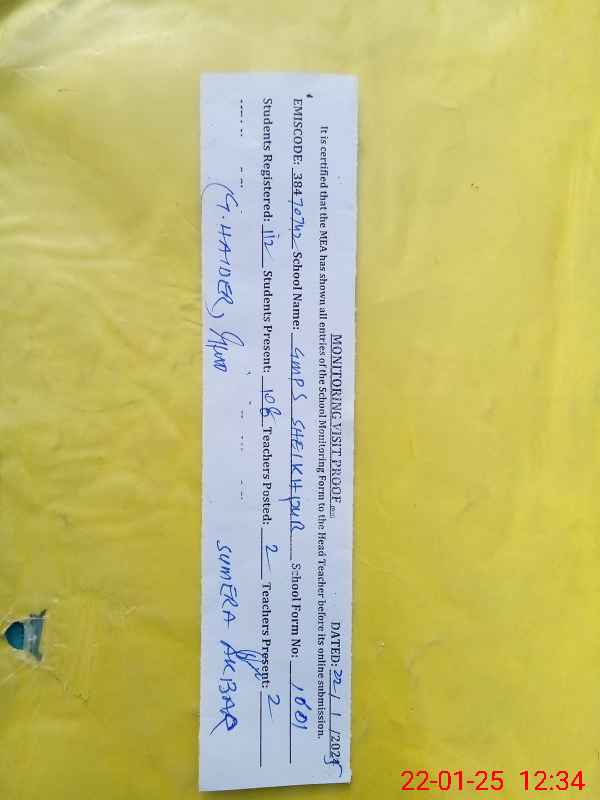 MONITORING VISIT PROOF DATED: 22/1/2025
It is certified that the MEA has shown all entries of the School Monitoring Form to the Head Teacher before its online submission.
EMISCODE: 38470742 School Name: GMPS SHEIKHPUR School Form No: 1001
Students Registered: 112 Students Present: 108 Teachers Posted: 2 Teachers Present: 2
(G. HAIDER) SUMERA AKBAR
22-01-25 12:34